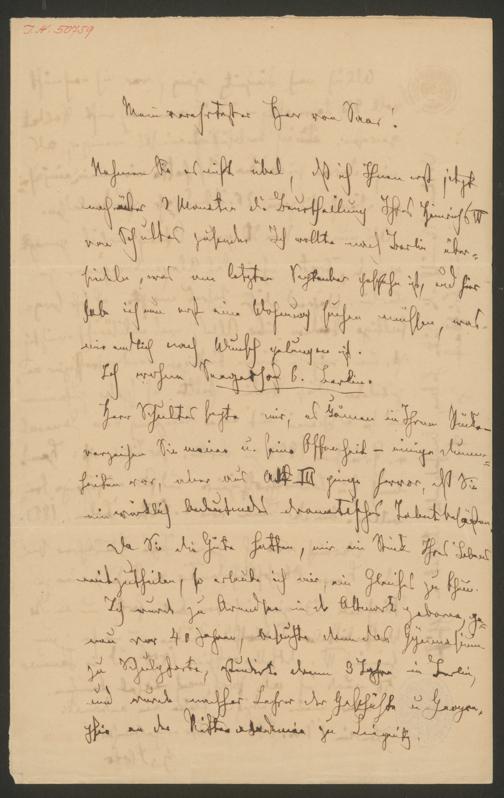 I.N. 50759
Mein verehrtester Herr von Saar!
Nehmen Sie es nicht übel, daß ich Ihnen erst jetzt
nach über 2 Monaten die Beurtheilung Ihres Heinrichs IV
von Schultes zusende. Ich wollte nach Berlin über-
siedeln, was am letzten September geschehn ist, und hier
habe ich nun erst eine Wohnung suchen müssen, was
mir endlich nach Wunsch gelungen ist.
Ich wohne b. Berlin.
Herr Schultes sagte mir, es kämen in Ihrem Stücke –
verzeihen Sie meine u. seine Offenheit – einige Dumm-
heiten vor, aber aus Akt III ginge hervor, daß Sie
ein wirklich bedeutendes dramatisches Talent besäßen.
Da Sie die Güte hatten, mir ein Stück Ihres Lebens
mitzutheilen, so erlaube ich mir, ein Gleiches zu thun.
Ich wurde zu Arendsee in der Altmark geboren, ge-
nau vor 40 Jahren, besuchte dann das Gymnasium
zu Schulpforte, studirte dann 3 Jahre in Berlin,
und wurde nachher Lehrer der Geschichte u. Geogra-
phie an der Ritterakademie zu Liegnitz.